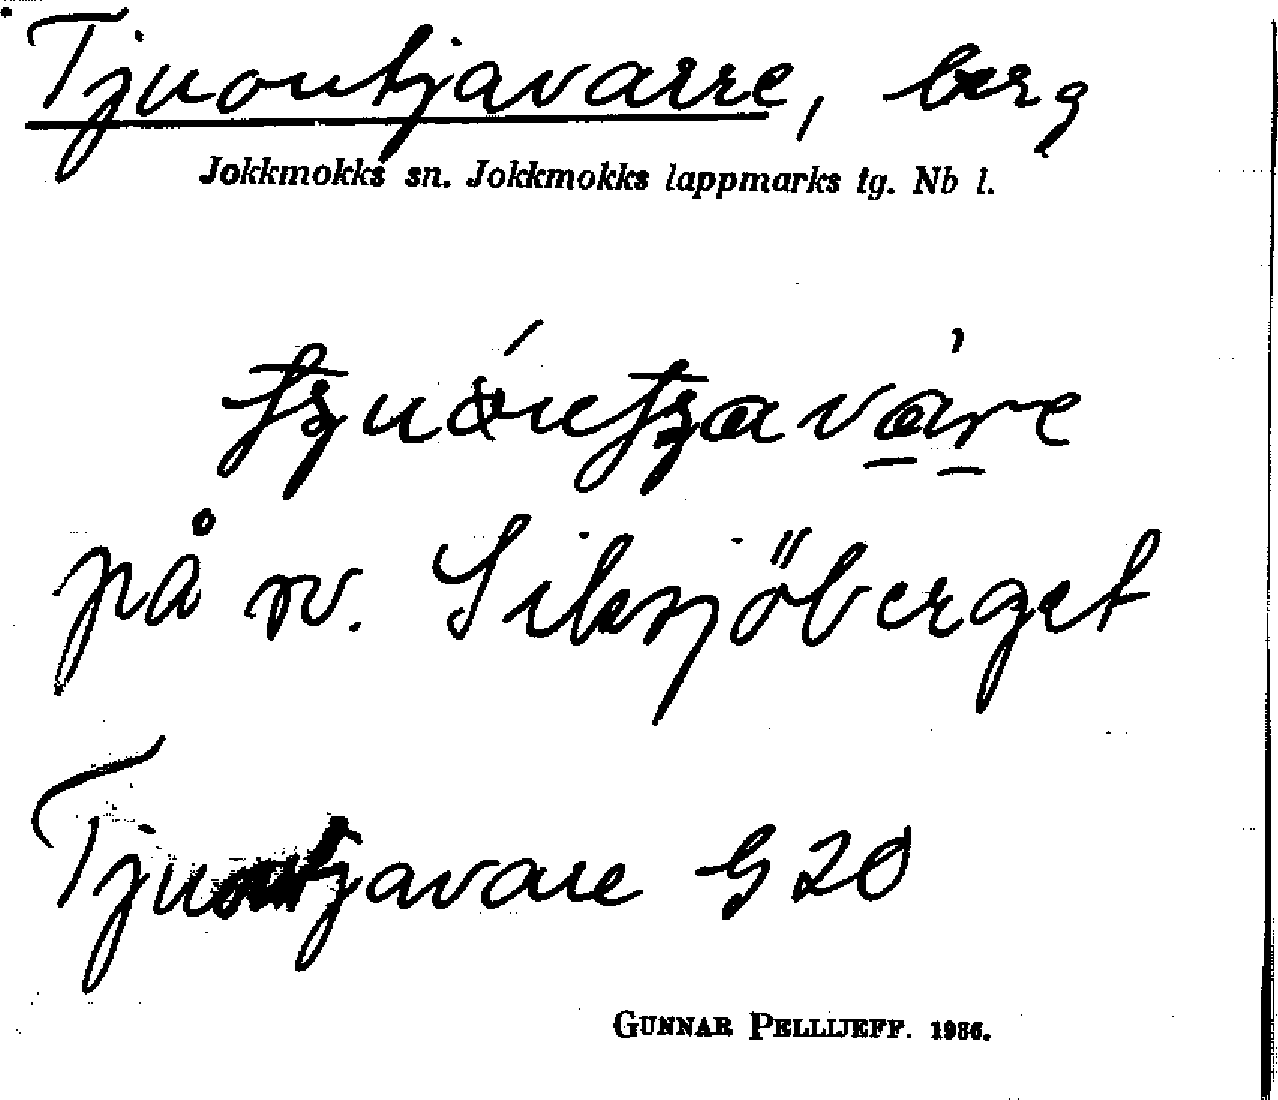 Tjuoutjavarre, berg
Jokkmokks sn. Jokkmokks lappmarks tg. Nb l.
på sv. Siksjöberget
Tjuoutjavare G 20
GUNNAR PELLIJEFF. 1986.